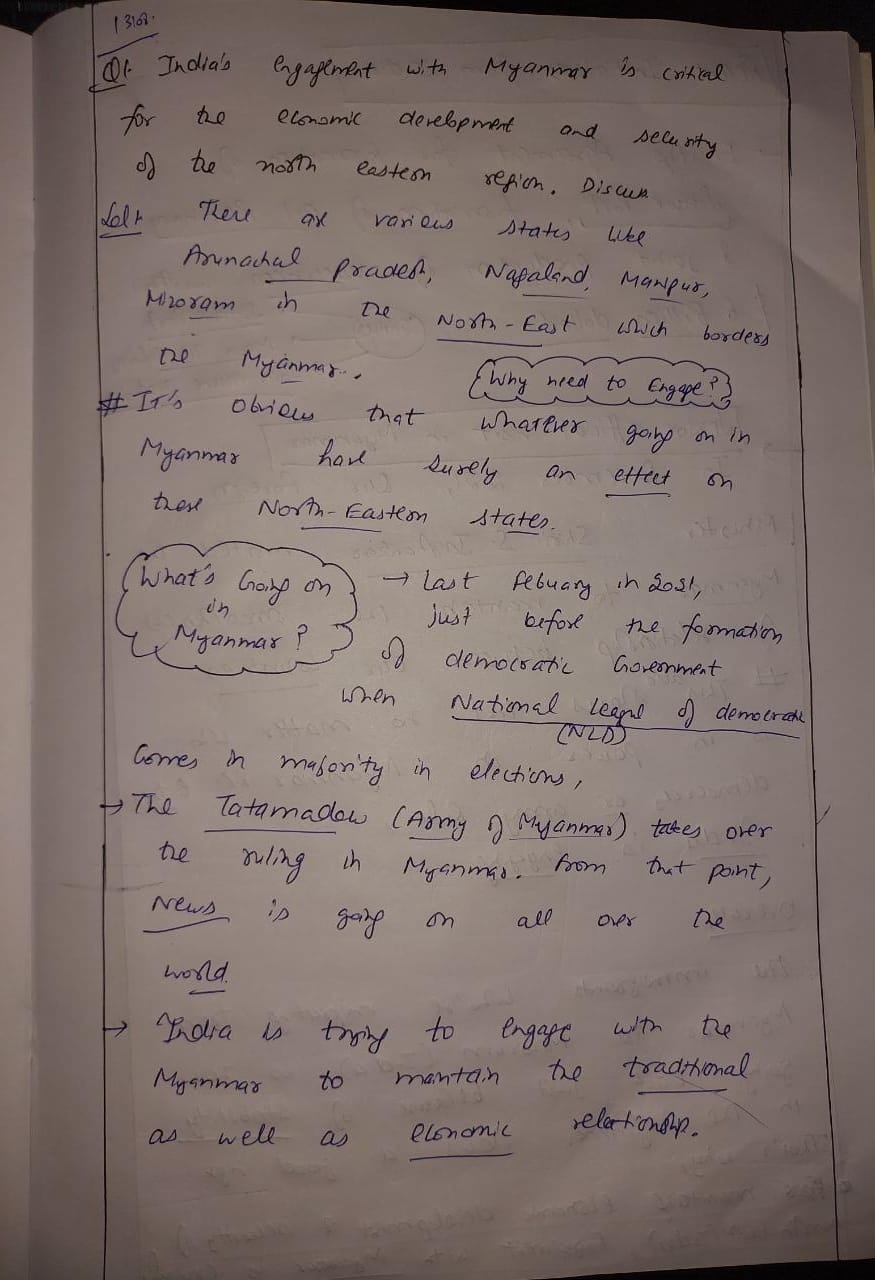 13/08.
Q1. India's engagement with Myanmar is critical
for the economic development and security
of the north eastern region. Discuss
Soln There are various states like
Arunachal Pradesh, Nagaland, Manipur,
Mizoram in the North-East which borders
the Myanmar.
Why need to Engage?
# It's obvious that whatever going on in
Myanmar have surely an effect on
these North-Eastern states.
What's Going on
in
Myanmar?
→ Last Febuary in 2021,
just before the formation
of democratic Government
when National League of democratic
(NLD)
Comes in majority in elections,
→ The Tatamadaw (Army of Myanmar) takes over
the ruling in Myanmar. From that point,
News is going on all over the
world.
→ India is trying to engage with the
Myanmar to mantain the traditional
as well as economic relationship.